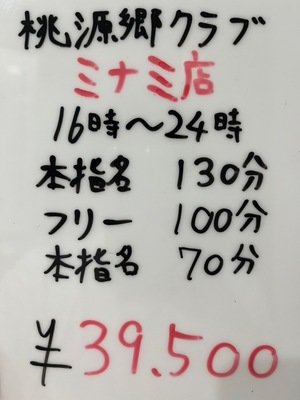 桃源郷クラブ
ミナミ店
16時～24時
本指名 130分
フリー 100分
本指名 70分
¥39.500